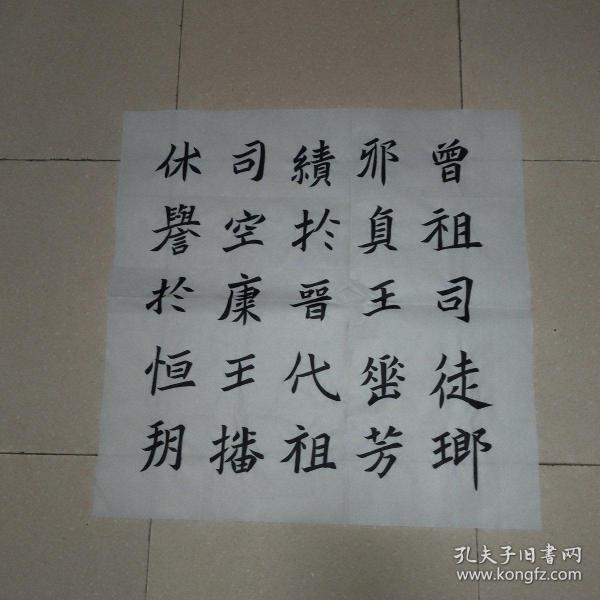 曾祖司徒瑯
邪貞王垂芳
績扵晉代祖
司空康王播
休譽扵恒玥
孔夫子旧書网
www.kongfz.com